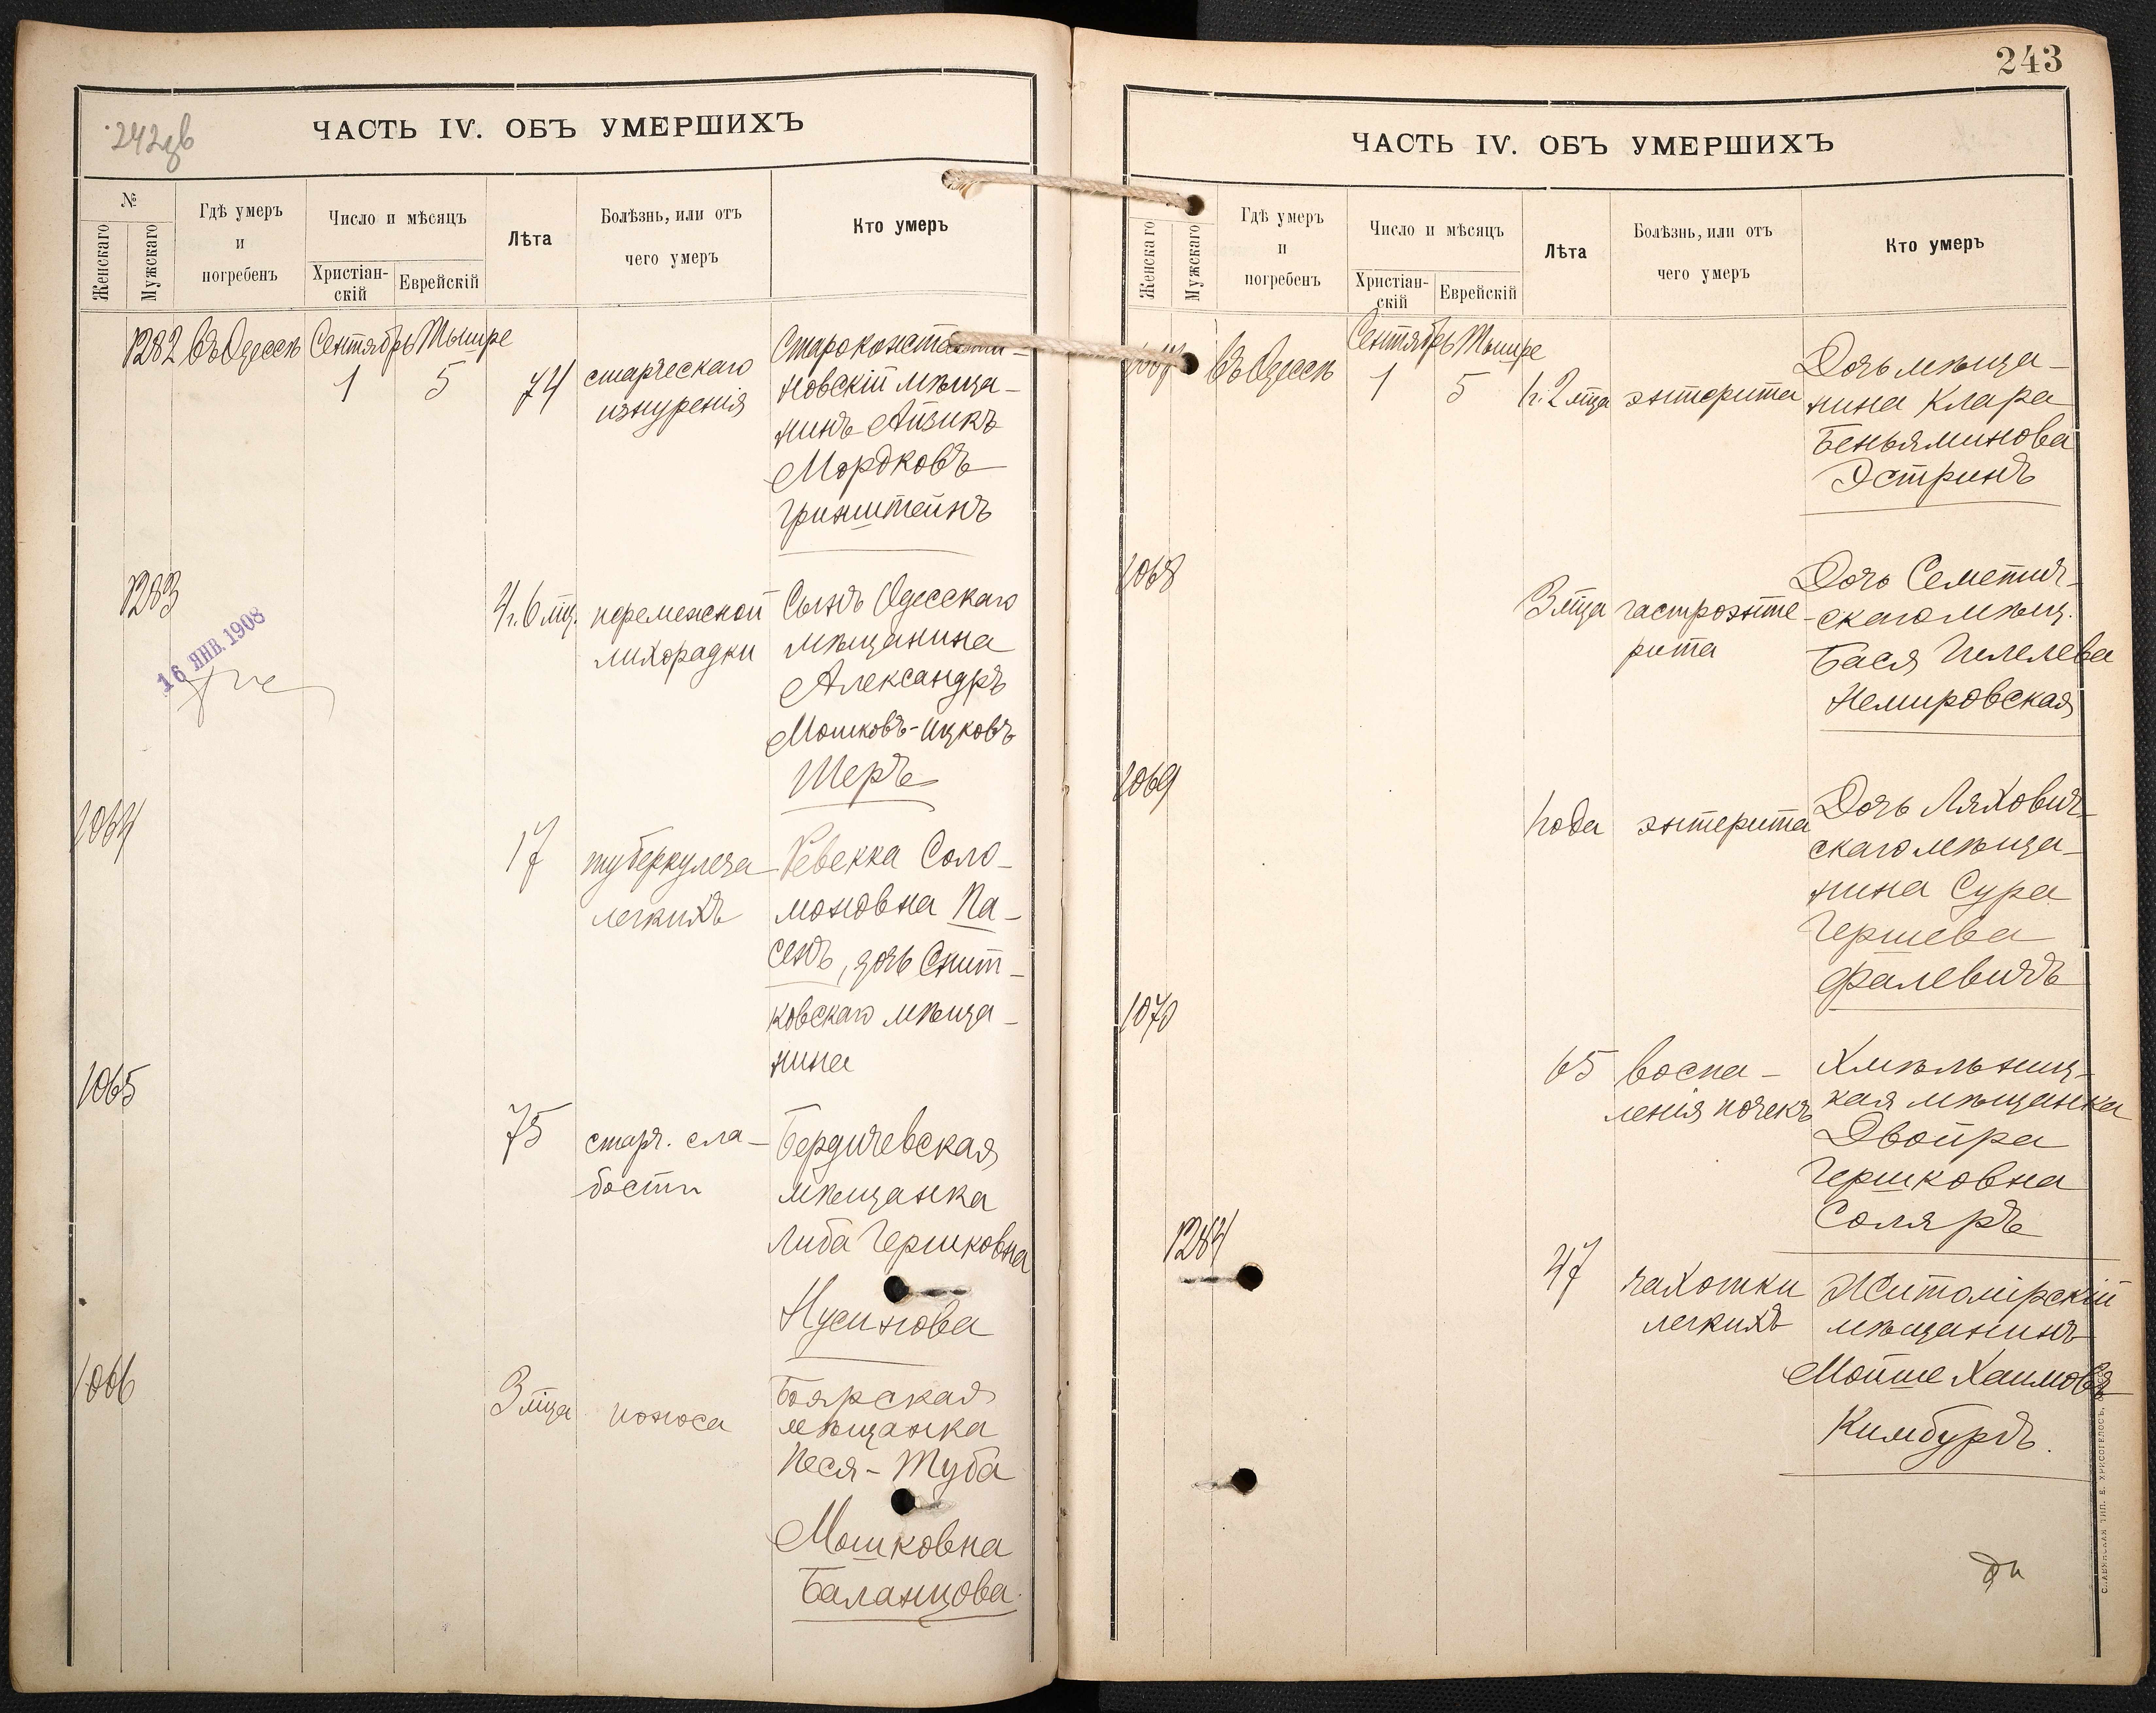 242зв
ЧАСТЬ IV. ОБЪ УМЕРШИХЪ
№
Женскаго
Мужскаго
Гдѣ умеръ
и
погребенъ
Число и мѣсяцъ
Христіан-
скій
Еврейскій
Лѣта
Болѣзнь, или отъ
чего умеръ
Кто умеръ
1282 Въ Одессѣ Сентябрь Тышре
1 5 74
старческаго
изнуренія
Староконстанти-
новскій мѣща-
нинъ Айзикъ
Мордковъ
Гринштейнъ
1283
16 ЯНВ. 1908
4 г. 6 мц. перемежной
лихорадки
Сынъ Одесскаго
мѣщанина
Александръ
Мошковъ-Ицковъ
Шеръ
1064
17 туберкулеза
легкихъ
Ревекка Соло-
моновна Па-
сенъ, дочь Снит-
ковскаго мѣща-
нина
1065
75 старч. сла-
бости
Бердичевская
мѣщанка
Либа Гершковна
Нусинова
1066
3 мца поноса
Боярская
мѣщанка
Песя-Туба
Мошковна
Баланцова.
243
ЧАСТЬ IV. ОБЪ УМЕРШИХЪ
Женскаго
Мужскаго
Гдѣ умеръ
и
погребенъ
Число и мѣсяцъ
Христіан-
скій
Еврейскій
Лѣта
Болѣзнь, или отъ
чего умеръ
Кто умеръ
1067 Въ Одессѣ Сентябрь Тышре
1 5 1 г. 2 мца энтерита
Дочь мѣща-
нина Клара
Беньяминова
Эстринъ
1068
3 мца гастроэнте-
рита
Дочь Семетич-
скаго мѣщ.
Бася Гилелева
Немировская
1069
1 года энтерита
Дочь Ляхович-
скаго мѣща-
нина Сура
Гершева
Фалевичъ
1070
65 воспа-
ленія почекъ
Хмѣльниц-
кая мѣщанка
Двойра
Гершковна
Соляръ
1284
47 чахотки
легкихъ
Житомірскій
мѣщанинъ
Мойше Хаимовъ
Кимбургъ.
СЛАВЯНСКАЯ ТИП. Е. ХРИСОГЕЛОСЪ,